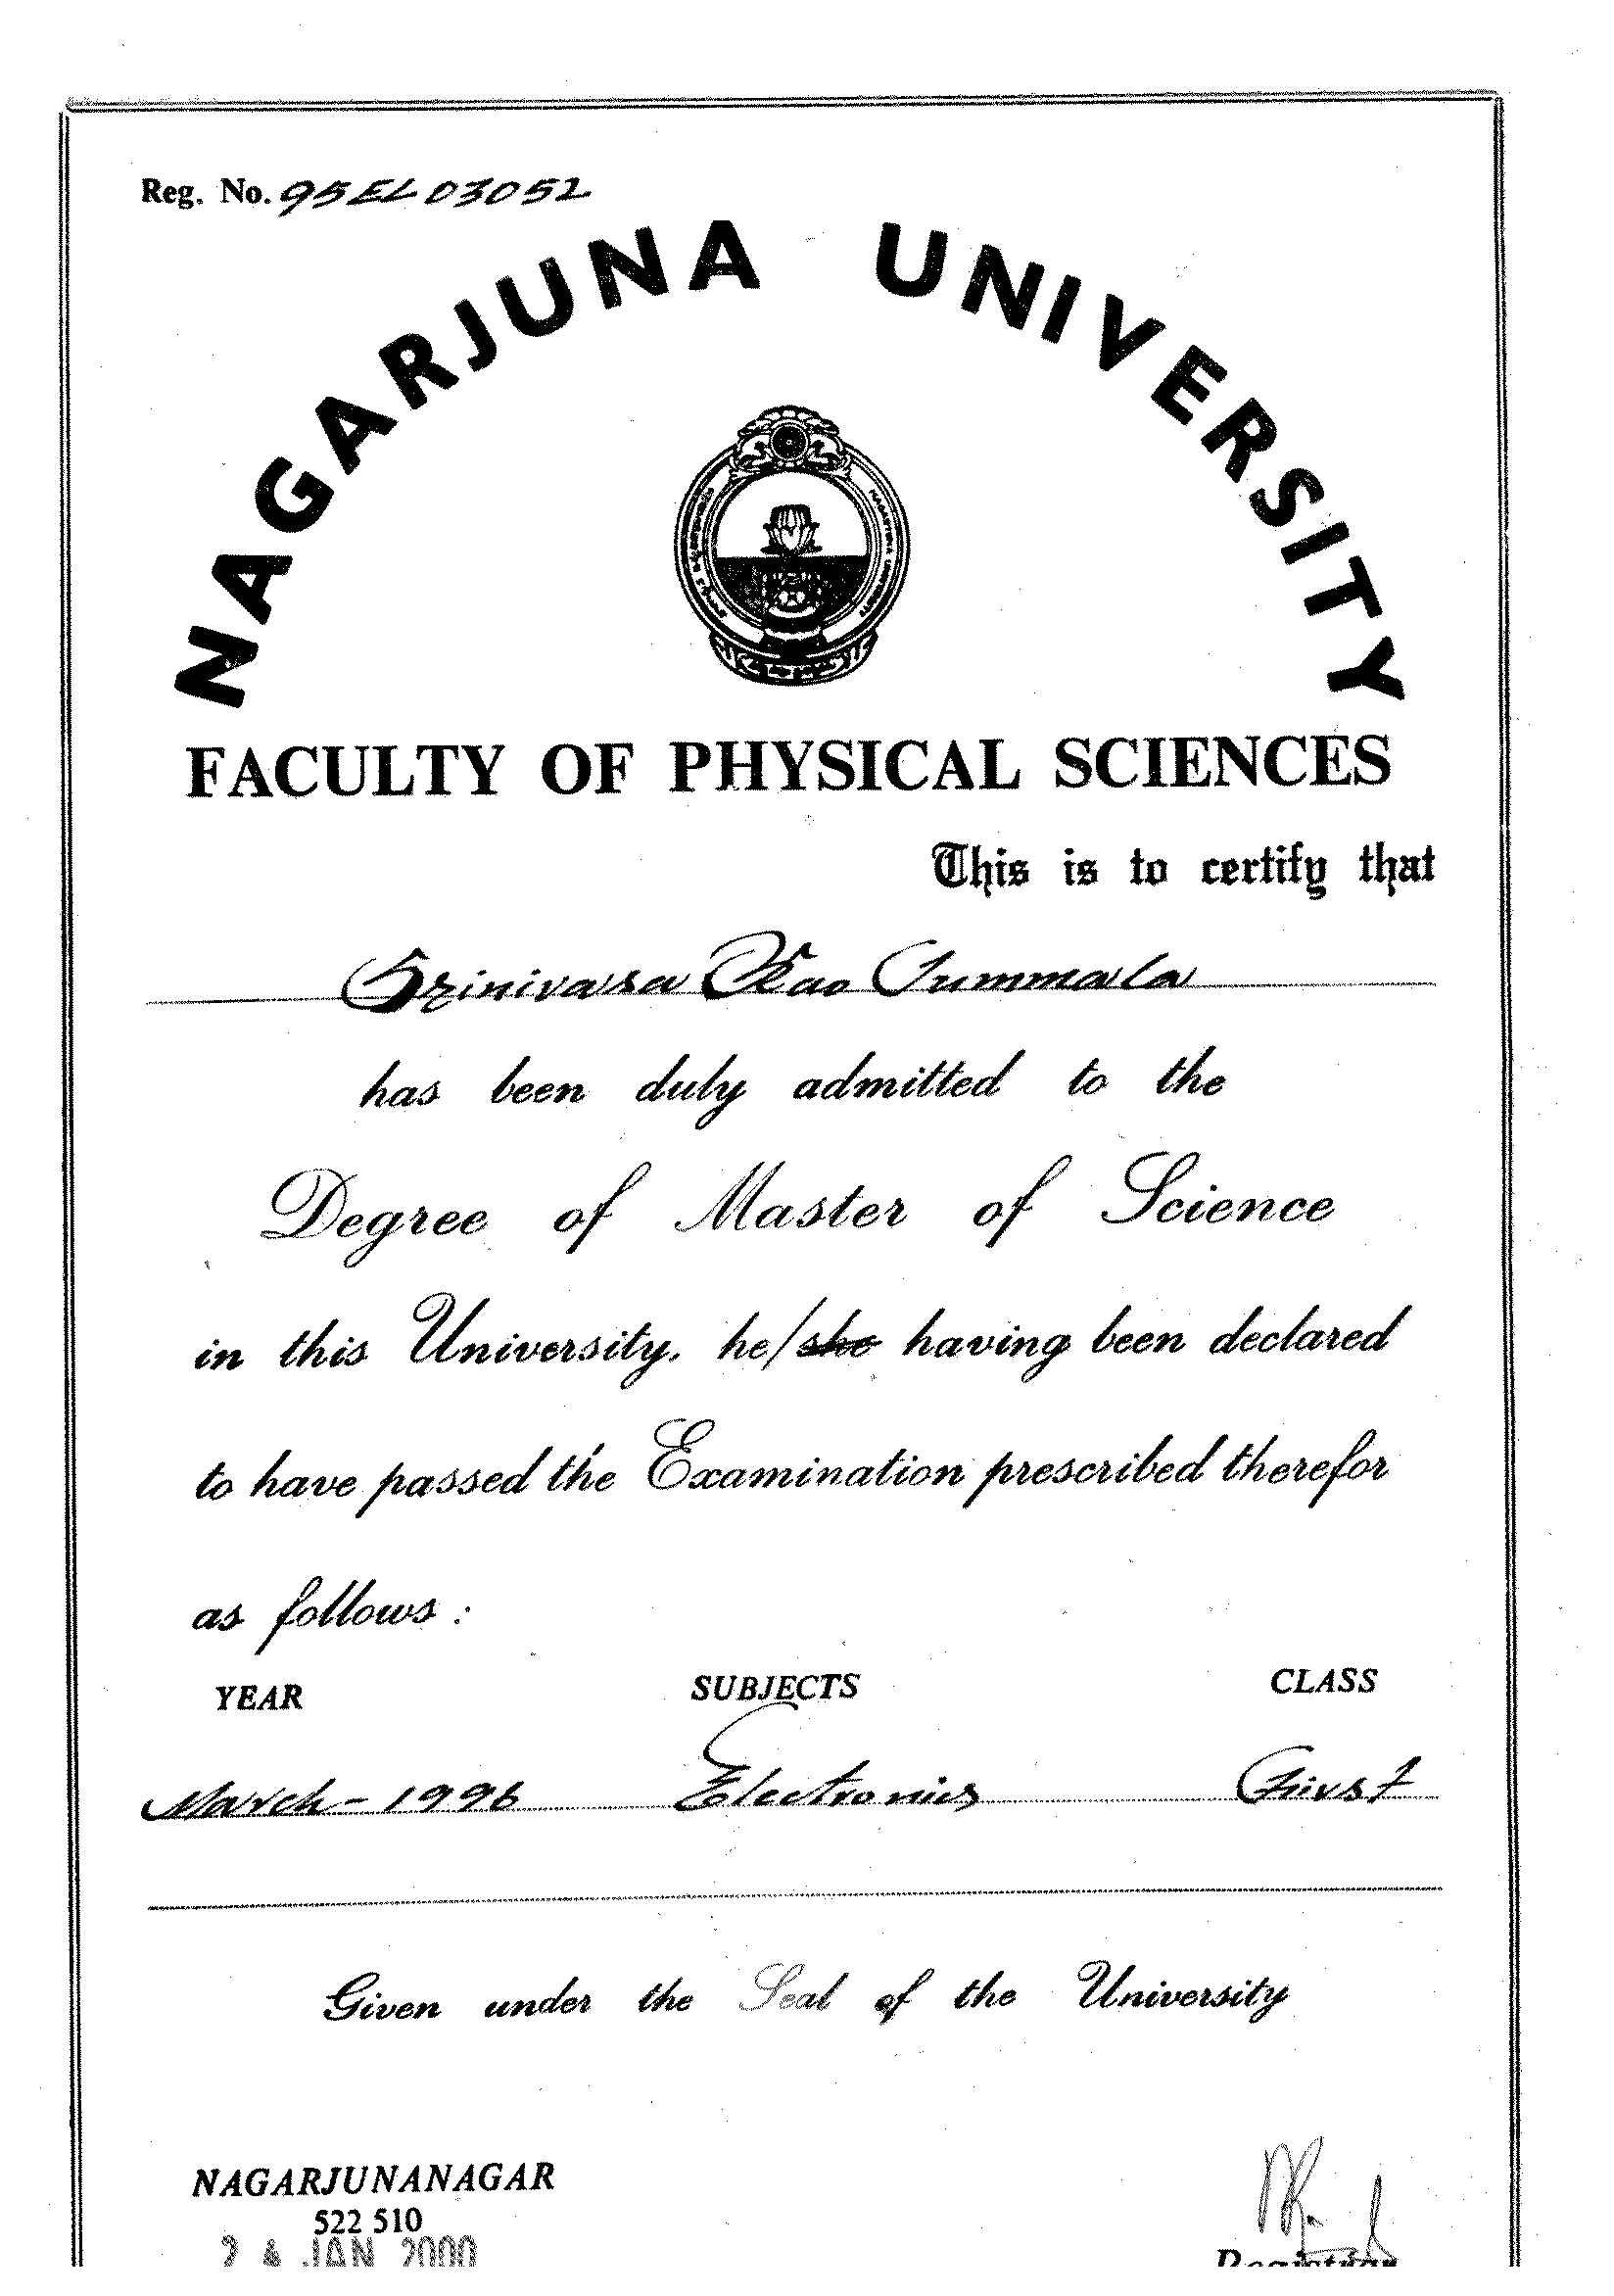 Reg. No. 95EL03052
NAGARJUNA UNIVERSITY
NAGARJUNA UNIVERSITY
FACULTY OF PHYSICAL SCIENCES
This is to certify that
Srinivasa Rao Tummala
has been duly admitted to the
Degree of Master of Science
in this University, he/she having been declared
to have passed the Examination prescribed therefor
as follows :
YEAR SUBJECTS CLASS
March-1996 Electronics First
Given under the Seal of the University
NAGARJUNANAGAR
522 510
24 JAN 2000
Registrar